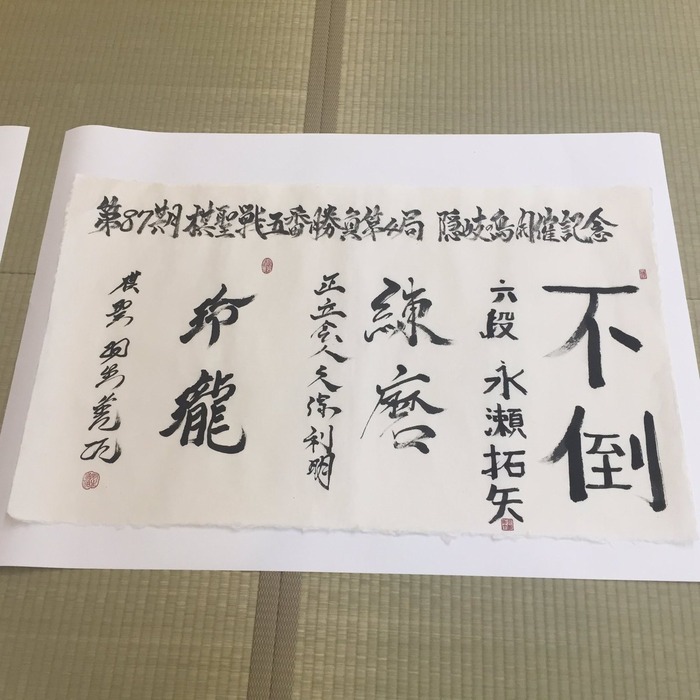 第87期棋聖戦五番勝負第4局 隠岐の島開催記念
不倒
六段 永瀬拓矢
練磨
正立会人 久保利明
玲瓏
棋聖 羽生善治